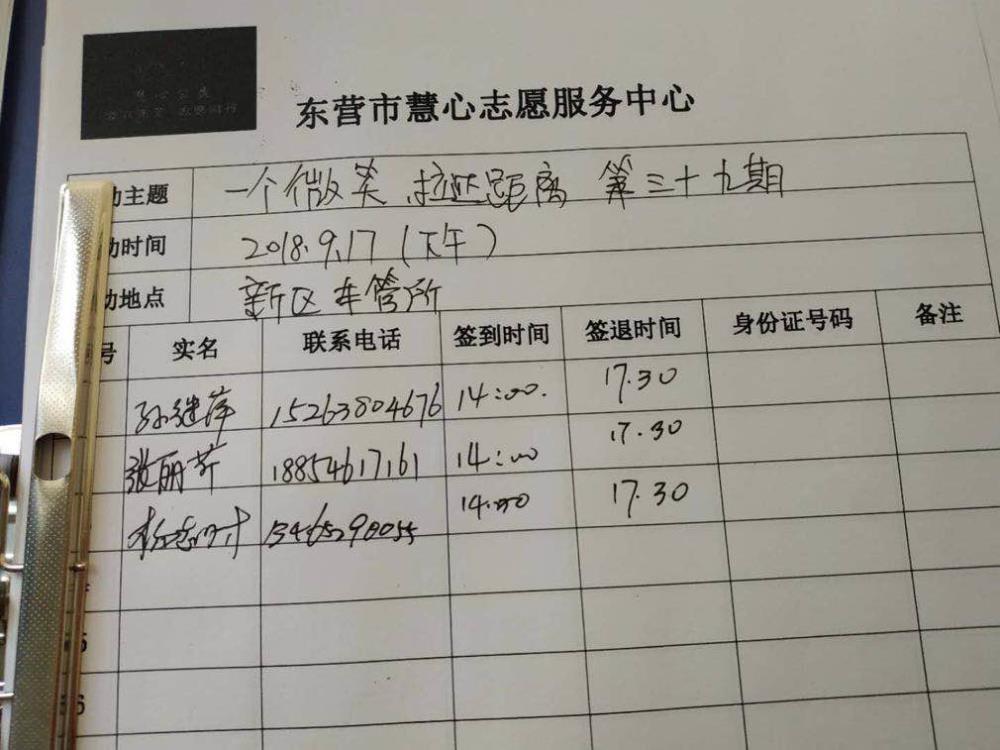 东营市慧心志愿服务中心
动主题 一个微笑 拉近距离 第三十九期
动时间 2018.9.17(下午)
动地点 新区车管所
号 实名 联系电话 签到时间 签退时间 身份证号码 备注
孙继萍 15263804676 14:00. 17.30
张丽芹 18854617161 14:00 17.30
14.00 17.30
5
6